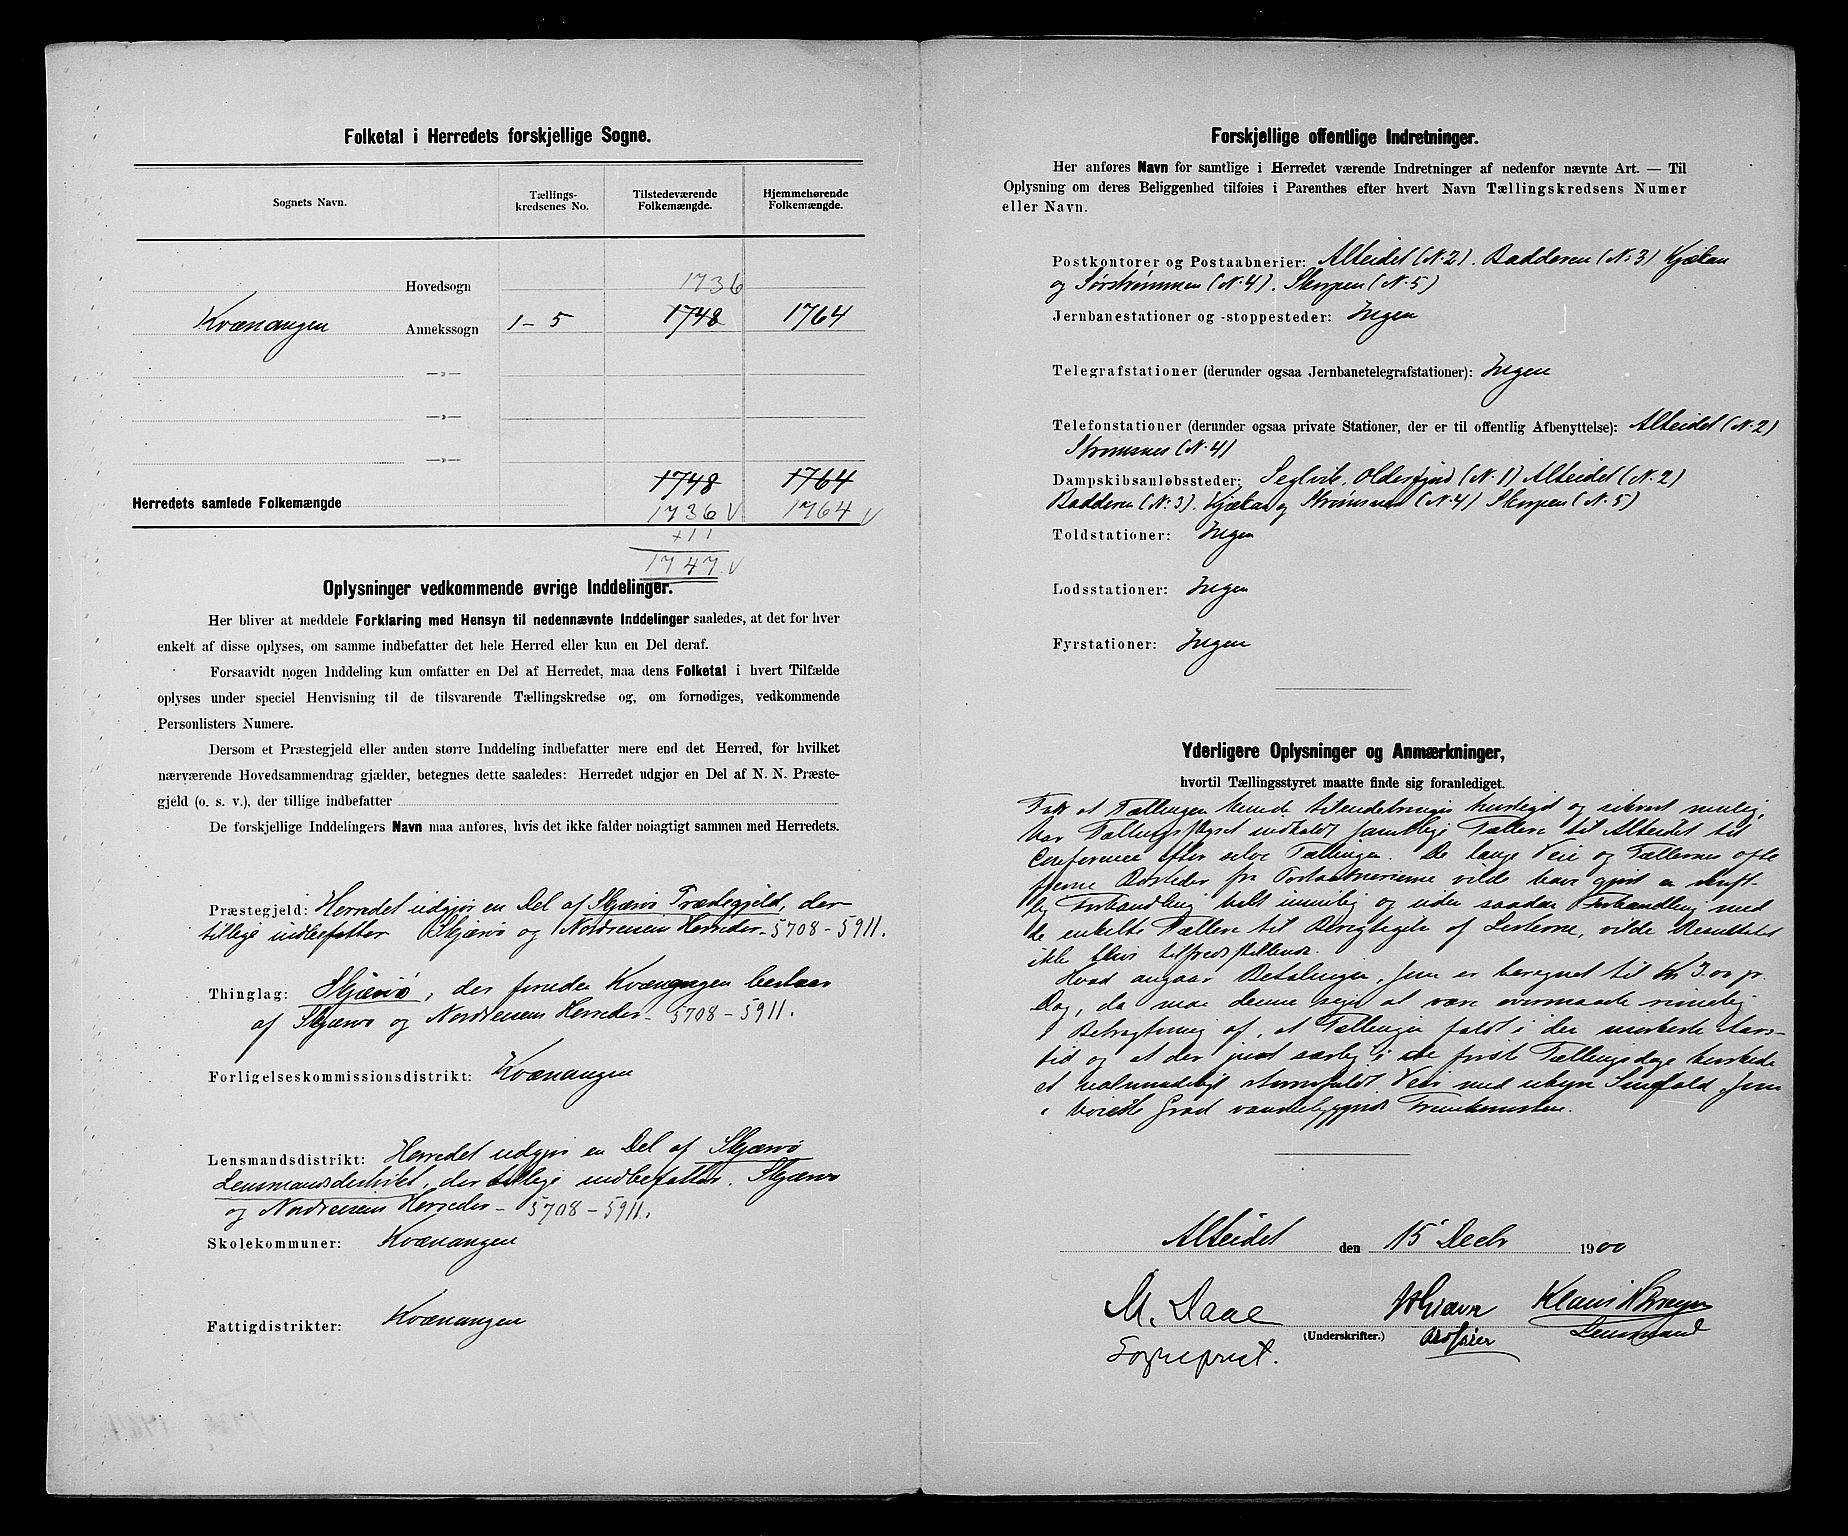 Folketal i Herredets forskjellige Sogne.
Sognets Navn.
Tællings-
kredsenes No.
Tilstedeværende
Folkemængde.
Hjemmehørende
Folkemængde.
Hovedsogn 1736
Kvænangen Annekssogn 1-5 1748 1764
—„—
—„—
—„—
1748 1764
Herredets samlede Folkemængde 1736 V 1764 V
+11
1747 V
Oplysninger vedkommende øvrige Inddelinger.
Her bliver at meddele Forklaring med Hensyn til nedennævnte Inddelinger saaledes, at det for hver
enkelt af disse oplyses, om samme indbefatter det hele Herred eller kun en Del deraf.
Forsaavidt nogen Inddeling kun omfatter en Del af Herredet, maa dens Folketal i hvert Tilfælde
oplyses under speciel Henvisning til de tilsvarende Tællingskredse og, om fornødiges, vedkommende
Personlisters Numere.
Dersom et Præstegjeld eller anden større Inddeling indbefatter mere end det Herred, for hvilket
nærværende Hovedsammendrag gjælder, betegnes dette saaledes: Herredet udgjør en Del af N. N. Præste-
gjeld (o. s. v.), der tillige indbefatter
De forskjellige Inddelingers Navn maa anføres, hvis det ikke falder nøiagtigt sammen med Herredets.
Præstegjeld: Herredet udgjør en Del af Skjærvø Præstegjeld, der
tillige indbefatter Skjærvø og Nordreisens Herreder - 5708 - 5911.
Thinglag: Skjærvø, der foruden Kvænangen bestaar
af Skjærvø og Nordreisens Herreder - 5708 - 5911.
Forligelseskommissionsdistrikt: Kvænangen
Lensmandsdistrikt: Herredet udgjør en Del af Skjærvø
Lensmandsdistrikt, der tillige indbefatter Skjærvø
og Nordreisens Herreder - 5708 - 5911.
Skolekommuner: Kvænangen
Fattigdistrikter: Kvænangen
Forskjellige offentlige Indretninger.
Her anføres Navn for samtlige i Herredet værende Indretninger af nedenfor nævnte Art. — Til
Oplysning om deres Beliggenhed tilføies i Parenthes efter hvert Navn Tællingskredsens Numer
eller Navn.
Postkontorer og Postaabnerier: Alteidet (N. 2). Badderen (N. 3) Kjækan
og Sørstrømmen (N. 4). Skorpen (N. 5)
Jernbanestationer og -stoppesteder: Ingen
Telegrafstationer (derunder ogsaa Jernbanetelegrafstationer): Ingen
Telefonstationer (derunder ogsaa private Stationer, der er til offentlig Afbenyttelse): Alteidet (N. 2)
Strømsnes (N. 4)
Dampskibsanløbssteder: Seglvik, Oldersfjord (N. 1) Alteidet (N. 2)
Badderen (N. 3). Kjækan og Strømsnes (N. 4) Skorpen (N. 5)
Toldstationer: Ingen
Lodsstationer: Ingen
Fyrstationer: Ingen
Yderligere Oplysninger og Anmærkninger,
hvortil Tællingsstyret maatte finde sig foranlediget.
For at Tællingen kunde tilendebringes hurtigst og sikrest mulig,
har Tællingsstyret indkaldt samtlige Tællere til Alteidet til
Conference efter selve Tællingen. De lange Veie og Tællernes ofte
fjerne Bosteder fra Postaabnerierne vilde have gjort en skrift-
lig Forhandling helt umulig og uden saadan Forhandling med
de enkelte Tællere til Berigtigelse af Listerne, vilde Resultatet
ikke blive tilfredsstillende.
Hvad angaar Betalingen, som er beregnet til Kr 3.00 pr.
Dag, da maa denne siges at være overmaade rimelig
i Betragtning af, at Tællingen faldt i den mørkeste Aars-
tid og at der just særlig i de første Tællingsdage herskede
et ualmindeligt stormfuldt Veir med uhyre Snefald som
i høieste Grad vanskeliggjorde Fremkomsten.
Alteidet den 15 Decbr 1900
M. Daae
Sogneprest.
(Underskrifter.)
Ordfører
Klaus
Lensmand